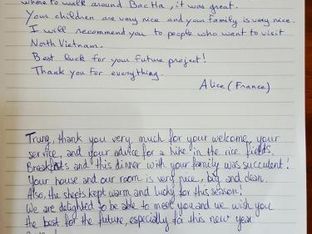 where to walk around BacHa, it was great.
Your children are very nice and your family is very nice.
I will recommend you to people who want to visit
North Vietnam.
Best luck for your future project!
Thank you for everything.
Alice (France)
Trung, thank you very much for your welcome, your
service, and your advice for a hike in the rice fields.
Breakfasts and this dinner with your family was succulent!
Your house and our room is very nice, big, and clean.
Also, the sheets kept warm and lucky for this season!
We are delighted to be able to meet you and we wish you
the best for the future, especially for this new year